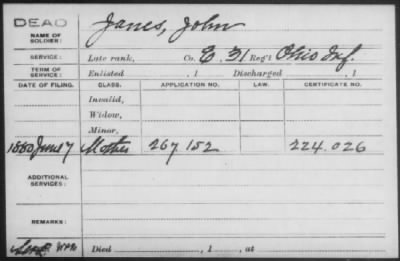 DEAD
NAME OF SOLDIER: Janes, John
SERVICE: Late rank, Co. E. 31 Reg't Ohio Inf.
TERM OF SERVICE: Enlisted , 1 Discharged , 1
DATE OF FILING. CLASS. APPLICATION NO. LAW. CERTIFICATE NO.
Invalid,
Widow,
Minor,
1880 June 7 Mother 267 152 224.026
ADDITIONAL SERVICES:
REMARKS:
Died , 1 , at